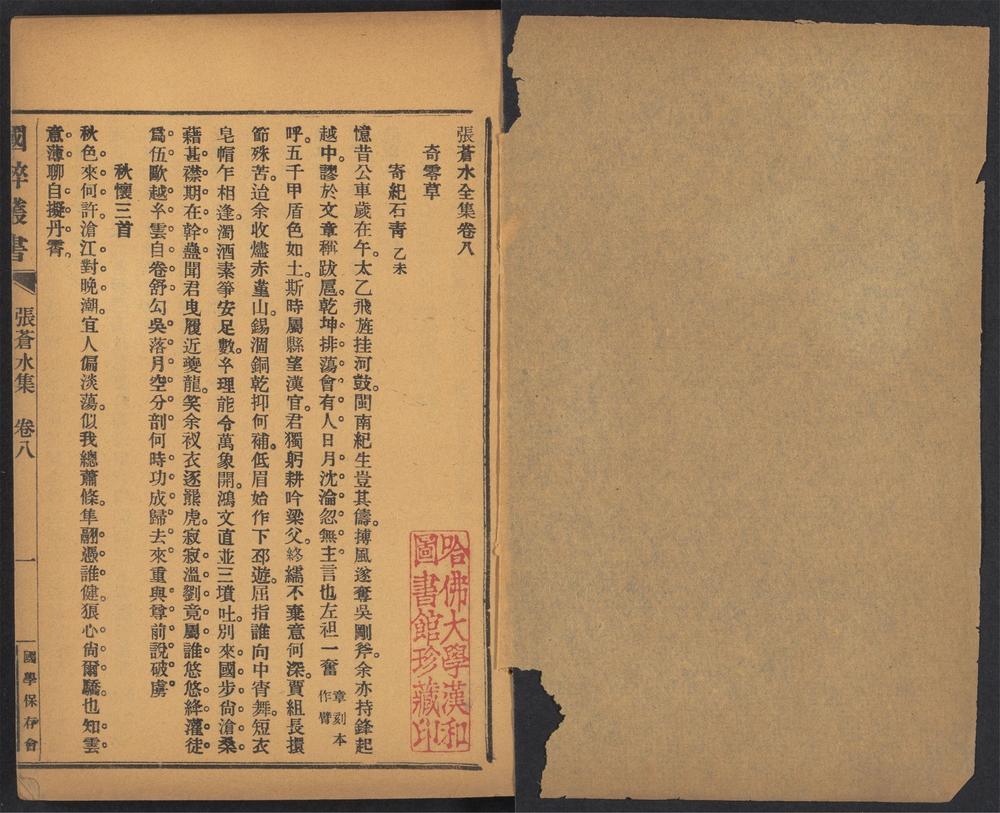 張蒼水全集卷八
奇零草
寄紀石青 乙未
憶昔公車歲在午太乙飛旌挂河鼓閩南紀生豈其儔搏風遂奪吳剛斧余亦持鋒起
越中謬於文章稱跋扈乾坤排蕩會有人日月沈淪忽無主言也左袒一奮 章刻本作臂
呼五千甲盾色如土斯時屬縣望漢官君獨躬耕吟梁父終繻不棄意何深賈組長擐
節殊苦迨余收燼赤堇山錫涸銅乾抑何補低眉始作下邳遊屈指誰向中宵舞短衣
皂帽乍相逢濁酒素箏安足數乎理能令萬象開鴻文直並三墳吐別來國步尙滄桑
藉甚襟期在幹蠱聞君曳履近夔龍笑余衩衣逐熊虎寂寂溫劉竟屬誰悠悠絳灌徒
爲伍歐越乎雲自卷舒勾吳落月空分剖何時功成歸去來重與尊前說破虜
秋懷三首
秋色來何許滄江對晚潮宜人偏淡蕩似我總蕭條隼翮憑誰健狼心尙爾驕也知雲
意薄聊自擬丹霄
國粹叢書
張蒼水集 卷八
一
國學保存會
哈佛大學漢和
圖書館珍藏印